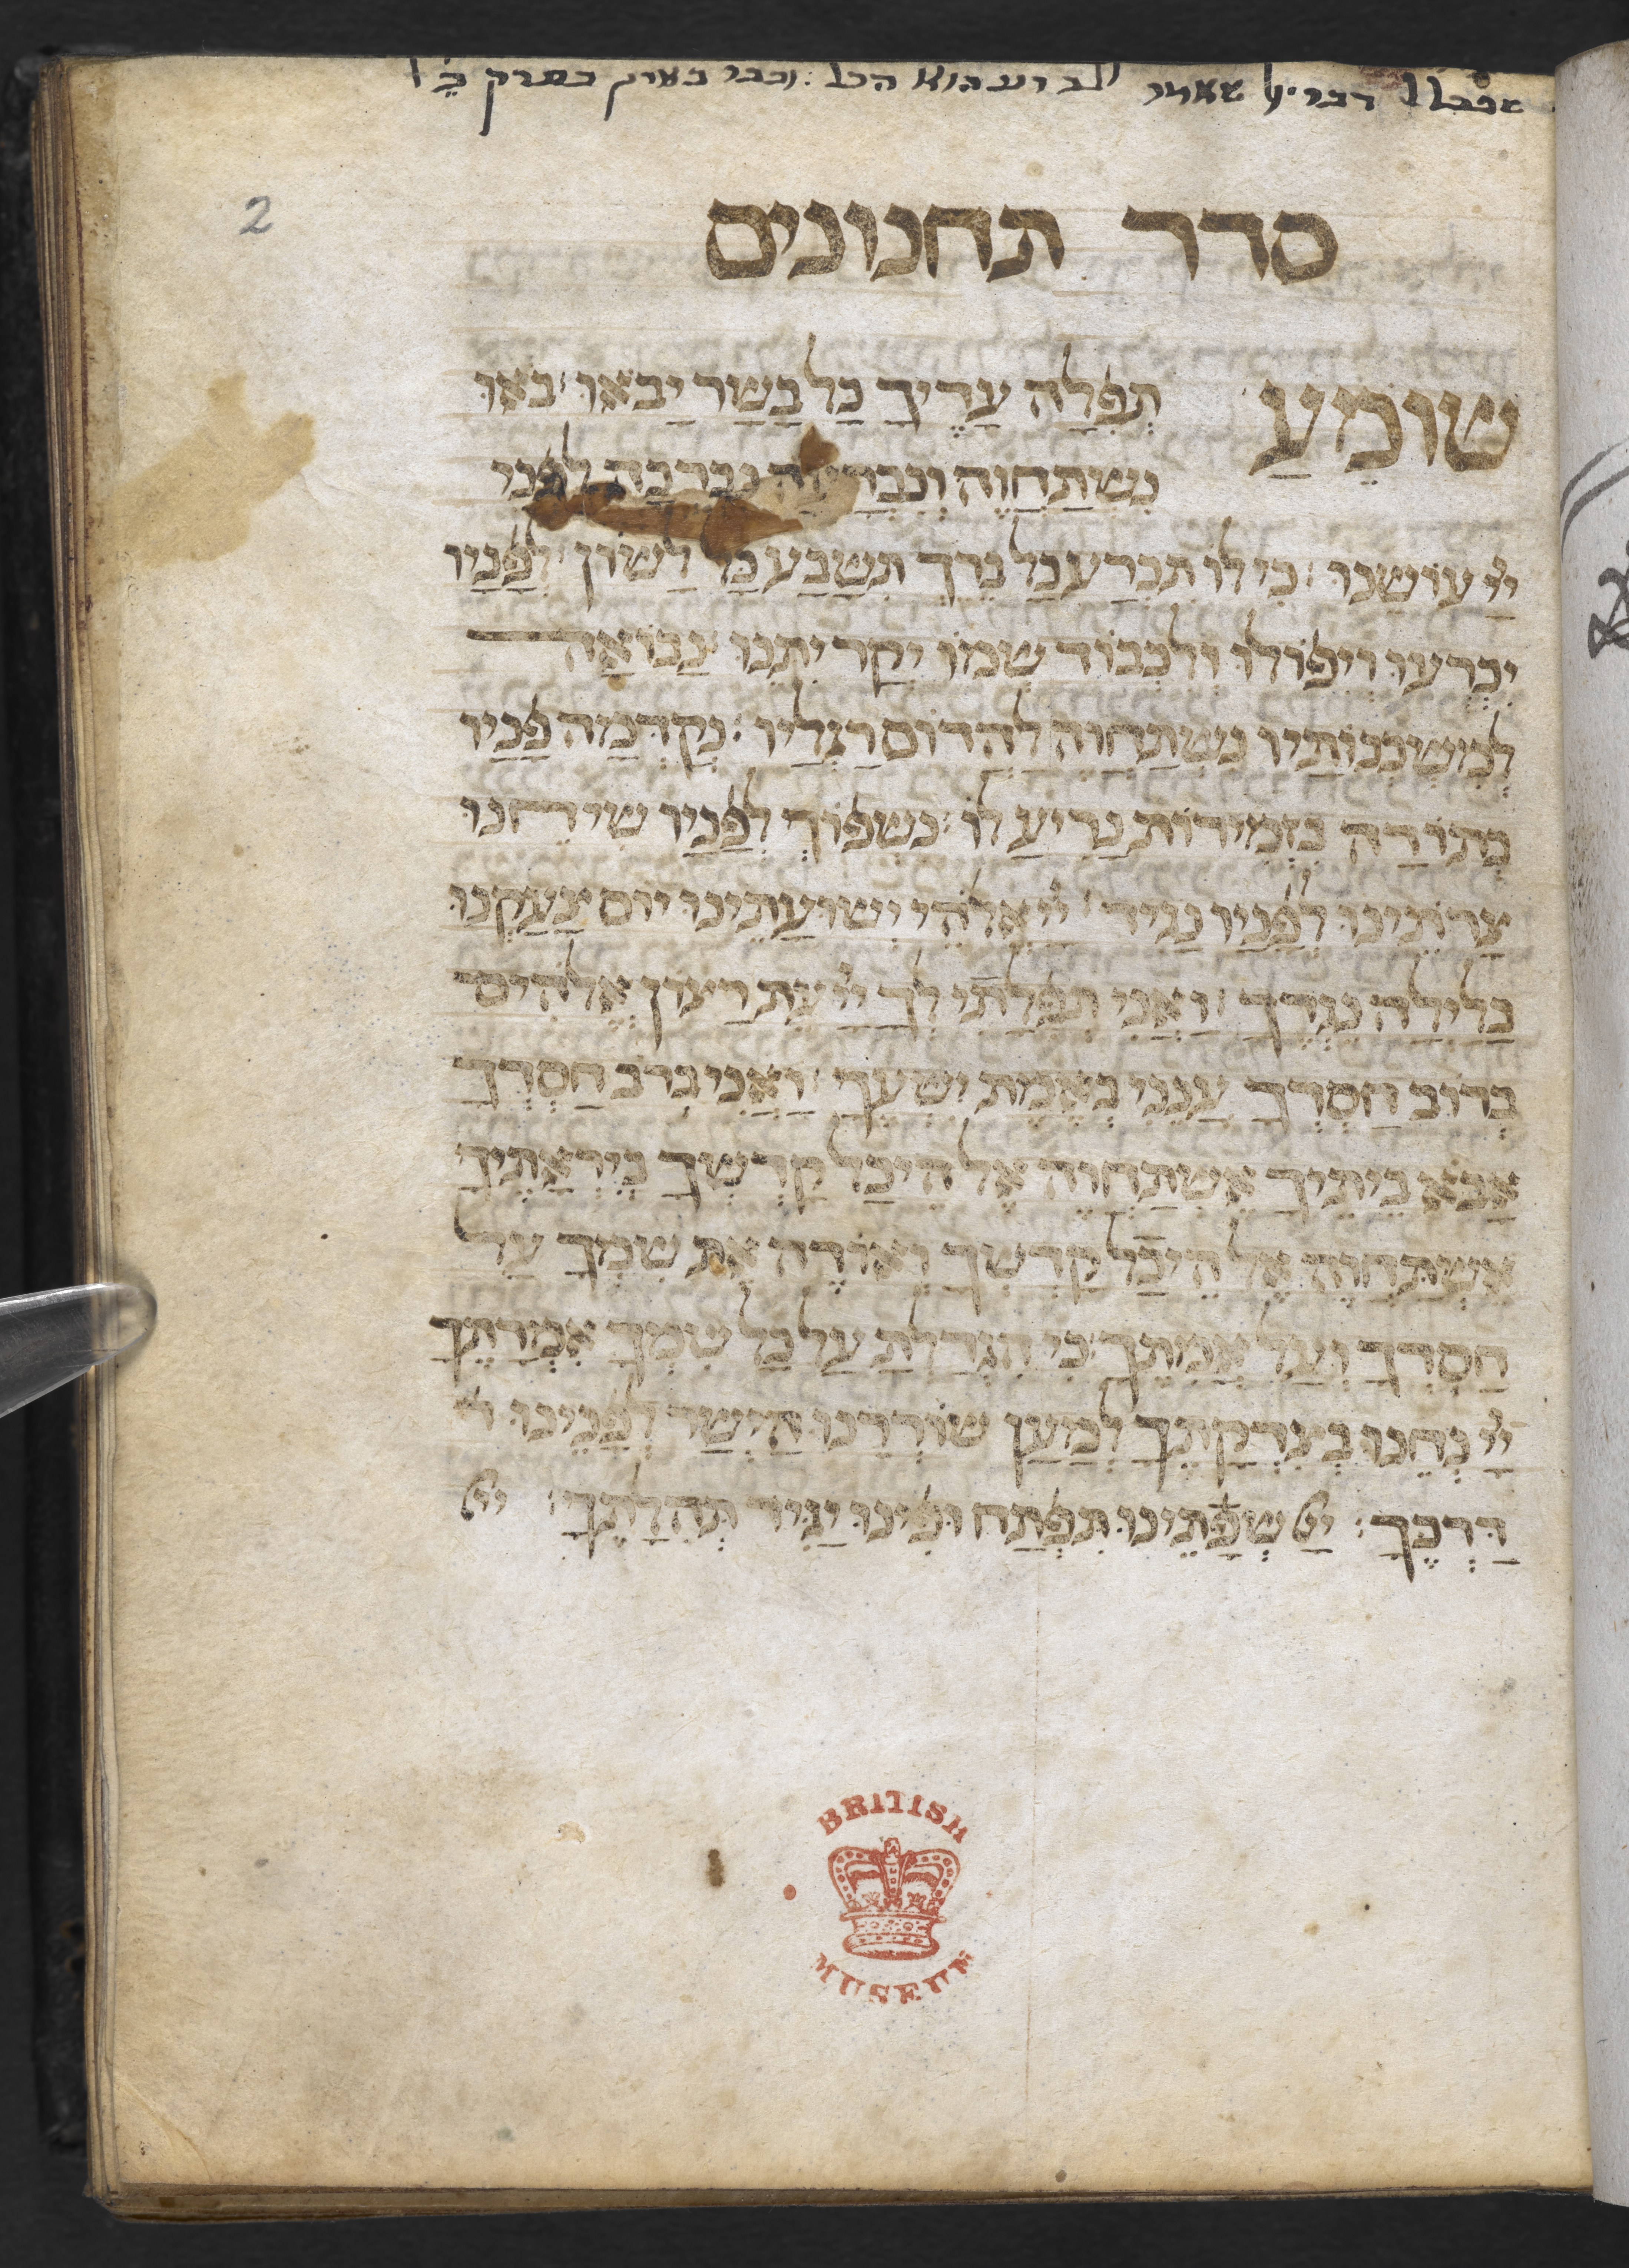 2
סדר תחנונים
שׁוֹמֵעַ תְפִלָה עָדֶיךָ כָל בָשָר יָבֹאוּ׃ בֹאוּ
נִשְתַחֲוֶה וְנִכְרָעָה נִבְרְכָה לִפְנֵי
יְיָ עוֹשֵנוּ׃ כִי לוֹ תִכְרַע כָל בֶרֶךְ תִשָבַע כָל לָשוֹן׃ לְפָנָיו
יִכְרְעוּ וְיִפוֹלוּ וְלִכְבוֹד שְמוֹ יְקָר יִתֵנוּ׃ נָבוֹאָה
לְמִשְכְנוֹתָיו נִשְתַחֲוֶה לַהֲדוֹם רַגְלָיו׃ נְקַדְמָה פָנָיו
בְתוֹדָה בִזְמִירוֹת נָרִיעַ לוֹ׃ נִשְפוֹךְ לְפָנָיו שִיחֵנוּ
צָרֹתֵינוּ לְפָנָיו נַגִיד׃ יְיָ אֱלֹהֵי יְשׁוּעָתֵינוּ יוֹם צָעַקְנוּ
בַלַיְלָה נֶגְדֶךָ׃ וַאֲנִי תְפִלָתִי לְךָ יְיָ עֵת רָצוֹן אֱלֹהִים
בְרוֹב חַסְדֶךָ עֲנֵנִי בֶאֱמֶת יִשְעֶךָ׃ וַאֲנִי בְרֹב חַסְדְךָ
אָבֹא בֵיתֶיךָ אֶשְתַחֲוֶה אֶל הֵיכַל קָדְשְךָ בְיִרְאָתֶיךָ
אֶשְתַחֲוֶה אֶל הֵיכַל קָדְשְךָ וְאוֹדֶה אֶת שְמֶךָ עַל
חַסְדְךָ וְעַל אֲמִתֶךָ׃ כִי הִגְדַלְתָ עַל כָל שִמְךָ אִמְרָתֶךָ
יְיָ נְחֵנוּ בְצִדְקָתֶךָ לְמַעַן שוֹרְרֵנוּ הַיְשַר לְפָנֵינוּ
דַרְכֶךָ׃ יְיָ שְפָתֵינוּ תִפְתַח וּפִינוּ יַגִיד תְהִלָתֶךָ׃ יְיָ
BRITISH
MUSEUM